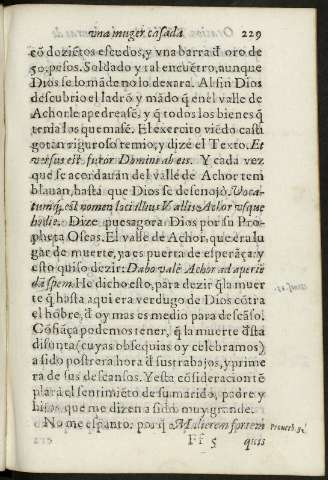 vna muger casada. 229
cõ doziẽtos escudos, y vna barra d̃ oro de
50. pesos. Soldado y tal encuẽtro, aunque
Dios se lo mãde no lo dexara. Al fin Dios
descubrio el ladrõ y mãdo q̃ enel valle de
Achor le apedreasẽ, y q̃ todos los bienes q̃
tenia los quemasẽ. El exercito viẽdo casti
go tan riguroso temio, y dize el Texto. Et
versus est furor Domini ab eis. Y cada vez
que se acordauan del valle de Achor tem
blauan, hasta que Dios se desenojò. Voca-
tumq̃, est nomen loci illius Vallis Achor vsque
hodie. Dize pues agora Dios por su Pro-
pheta Oseas. El valle de Achor, que era lu
gar de muerte, ya es puerta de esperãça; y
esto quiso dezir: Dabo valẽ Achor ad aperiẽ
dã spem. He dicho esto, para dezir q̃ la muer
te q̃ hasta aqui era verdugo de Dios cõtra
el hõbre, d̃ oy mas es medio para descãso.
Cõfiãça podemos tener, q̃ la muerte d̃sta
difunta (cuyas obsequias oy celebramos)
a sido postrera hora d̃ sus trabajos, y prime
ra de sus descansos. Y esta cõsideracion tẽ
plarà el sentimiẽto de su marido, padre y
hijos, que me dizen a sido muy grande.
No me espanto: porq̃ Mulierem fortem
Prouerb. 31
Ff 5 quis